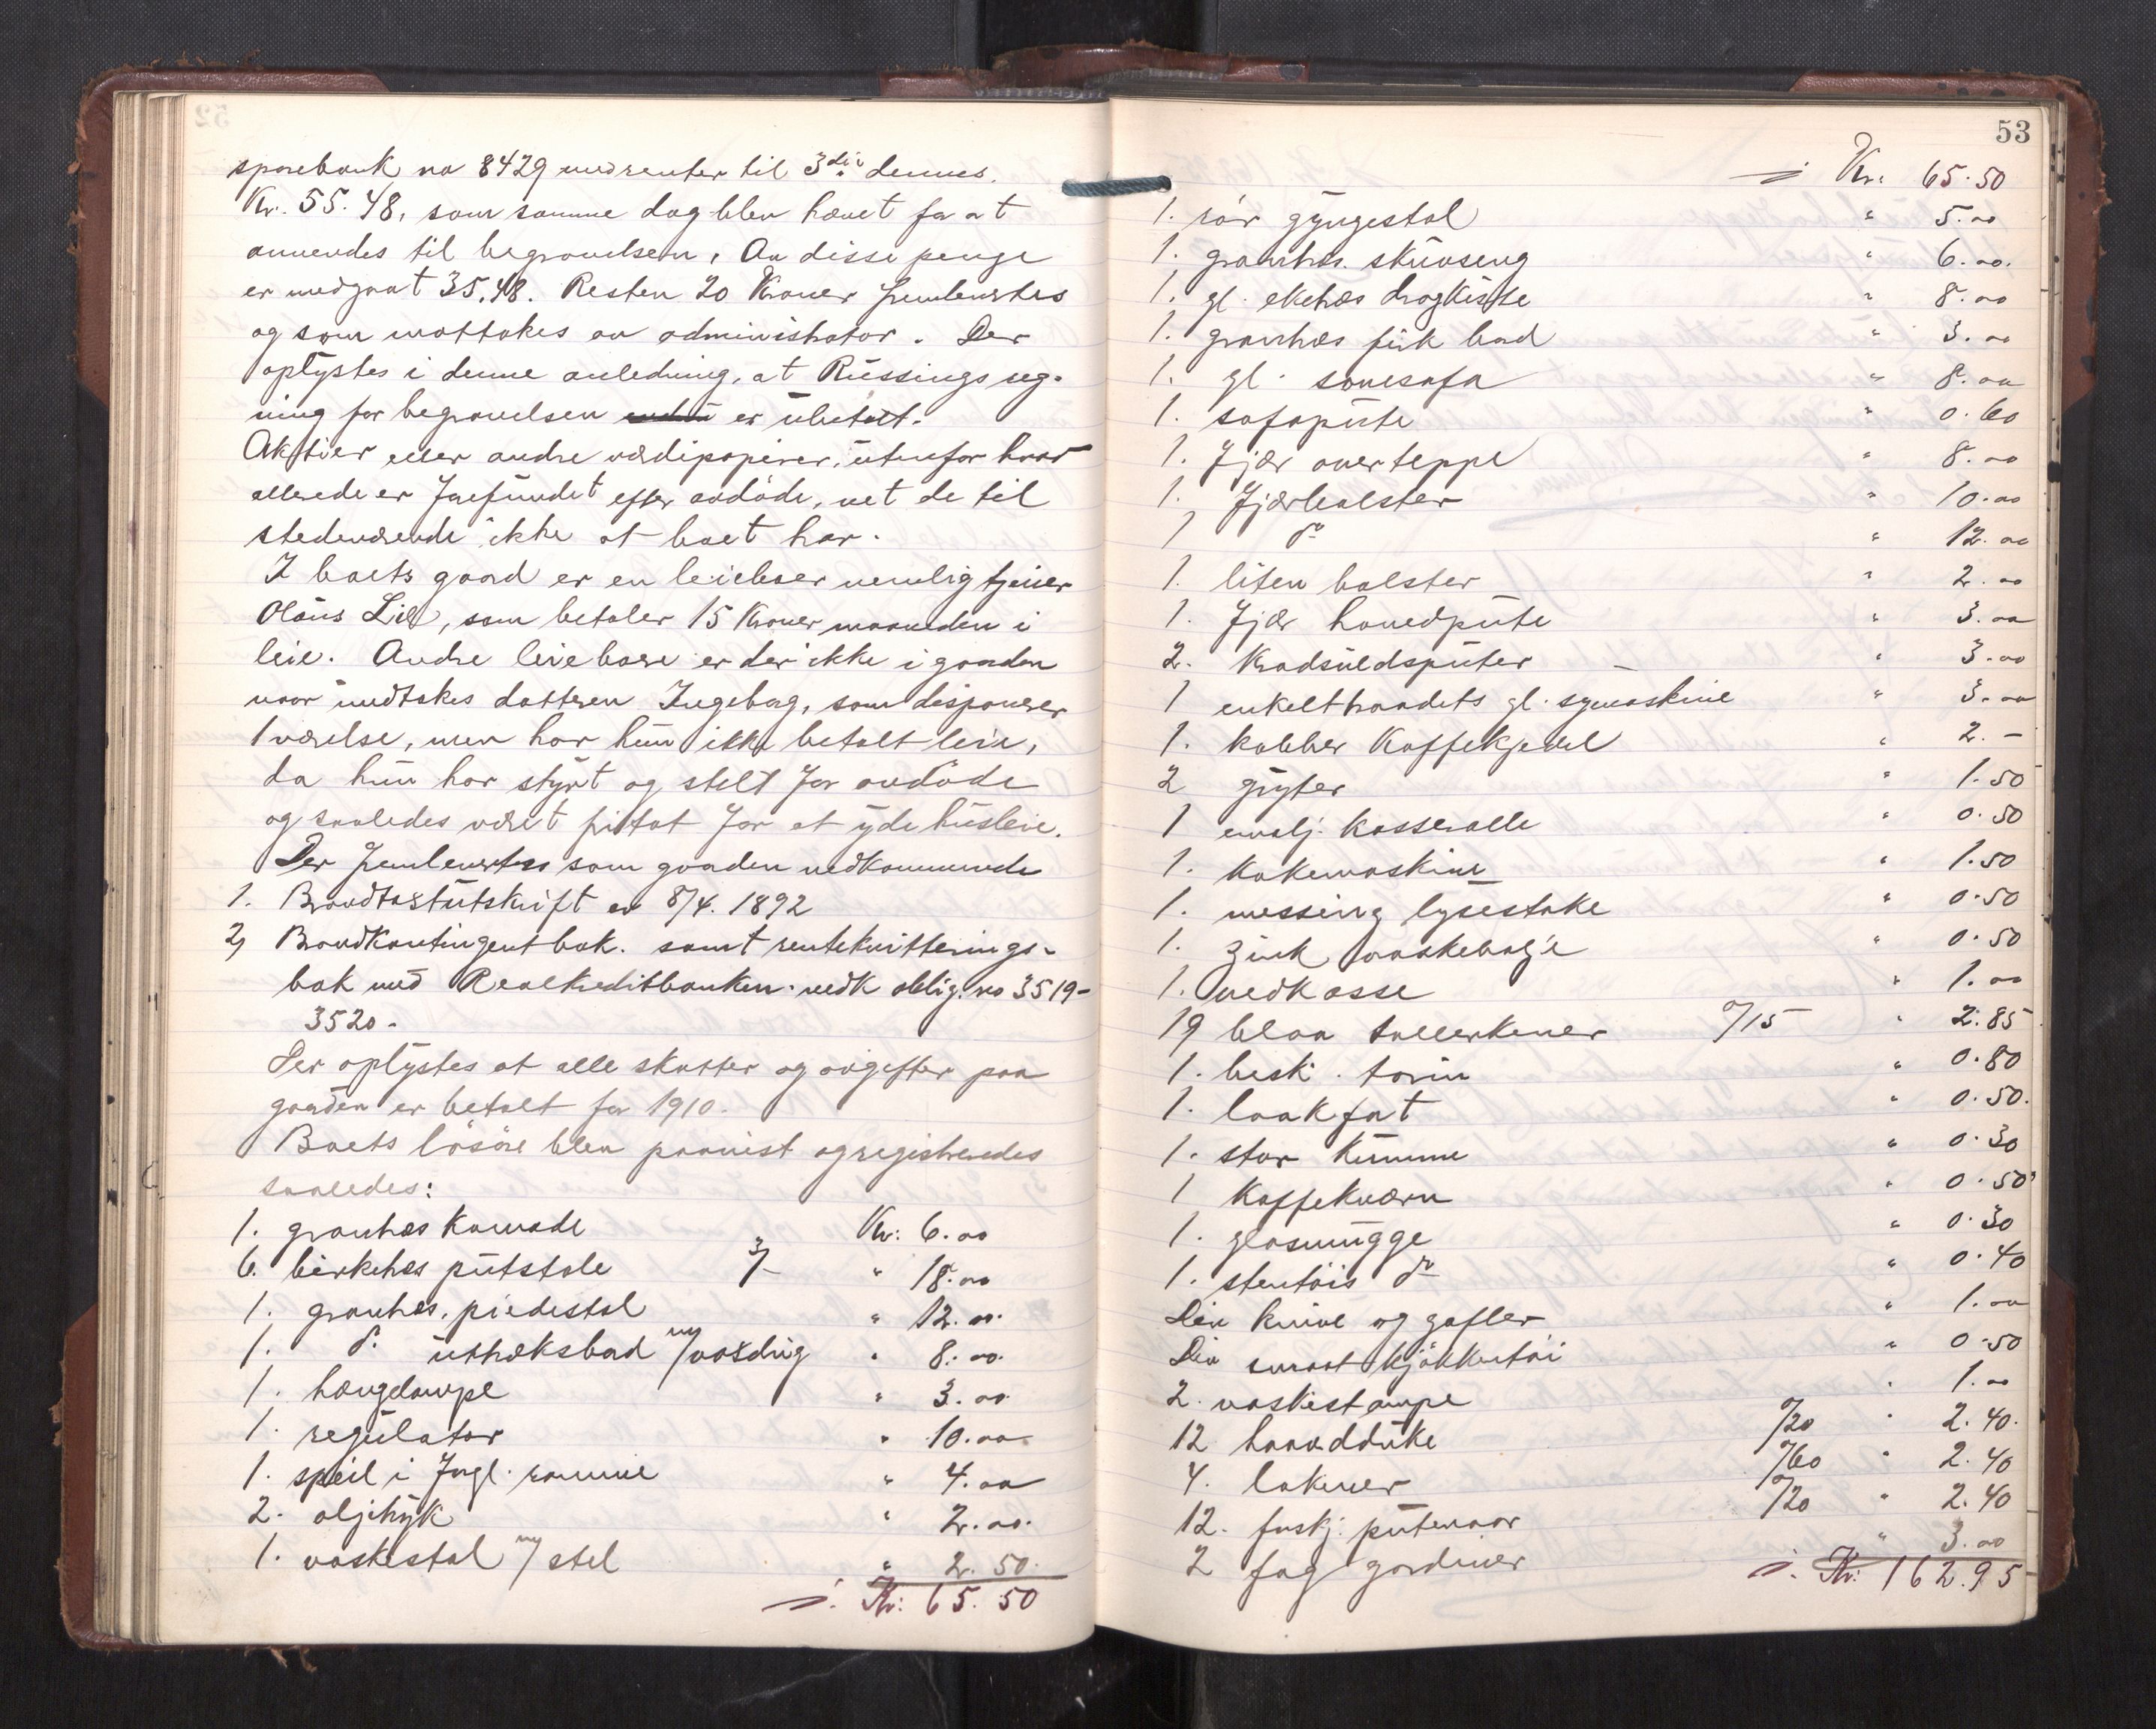 sparebank no 8429 med renter til 3die dennes.
Kr. 55.48, som samme dag blev hævet for at
anvendes til begravelsen. Av disse penge
er medgaat 35,48. Resten 20 Kroner fremlævertes
og som mottokes av administrator. Der
oplystes i denne anledning, at Rüssings reg-
ning for begravelsen er ubetalt.
Aktier eller andre værdipapirer, utenfor hvad
allerede er forefundet efter avdöde, vet de til
stedeværende ikke at boet har.
I boets gaard er en leieboer nemlig
Olaus Lie, som betaler 15 Kroner maaneden i
leie. Andre leieboere er der ikke i gaarden
naar undtakes datteren Ingeborg, som disponerer
1 værelse, men har hun ikke betalt leie,
da hun har styrt og stelt for avdöde
og saaledes været fritat for at yde husleie.
Der fremlevertes som gaarden vedkommende
1. Brandtakstutskrift av 8/4. 1892
2, Brandkontingentbok. samt rentekvitterings-
bok med Realkreditbanken. vedk oblig. no 3519-
3520.
Der oplystes at alle skatter og avgifter paa
gaarden er betalt for 1910.
Boets lösöre blev paavist og registreredes
saaledes:
1. granhæs Komode Kr: 6.00
6. birkehæs putstole 3/- " 18.00
1. granhæs. piedestal " 12.00.
1. do uttræksbord m/voxdug " 8.00.
1. hængelampe " 3.00
1. regulator " 10.00
1. speil i forgl. ramme " 4.00
2. oljetryk " 2.00.
1. vaskestol m/ stel " 2.50.
Kr: 65.50
53
Kr: 65.50
1. rör gyngestol " 5.00
1. granhæs. skuvseng " 6.00.
1. gl. ekehæs dragkiste " 8.00
1. granhæs firk bord " 3.00
1. gl. sovesofa " 8.00
1. sofapute " 0.60
1. Fjær overteppe " 8.00
1. Fjærbolster " 10.00
1 do " 12.00
1. liten bolster " 2.00
1. Fjær hovedpute " 3.00
2. Kradsuldsputer " 3.00
1 enkelttraadets gl. symaskine " 3.00
1. kobber Kaffekjedel " 2.-
2 gryter " 1.50
1 emalj. Kasserolle " 0.50
1. Kokemaskine " 1.50
1. messing lysestake " 0.50
1. zink vaskebalje " 0.50
1. vedkasse " 1.00
19 blaa tallerkener a/15 " 2.85
1. besk. terrin " 0.80
1. laakfat " 0.50.
1. stor Kumme " 0.30
1 Kaffekværn " 0.50
1. glasmugge " 0.30
1. stentöis do " 0.40
Div knive og gafler " 1.00
Div smaat kjökkentöi " 0.50
2. vaskestampe " 1.00
12 haandduke a/20 " 2.40.
4. lakener a/60 " 2.40
12. forskj. putevaar a/20 " 2.40
2 fag gardiner " 3.00
Kr: 162.95